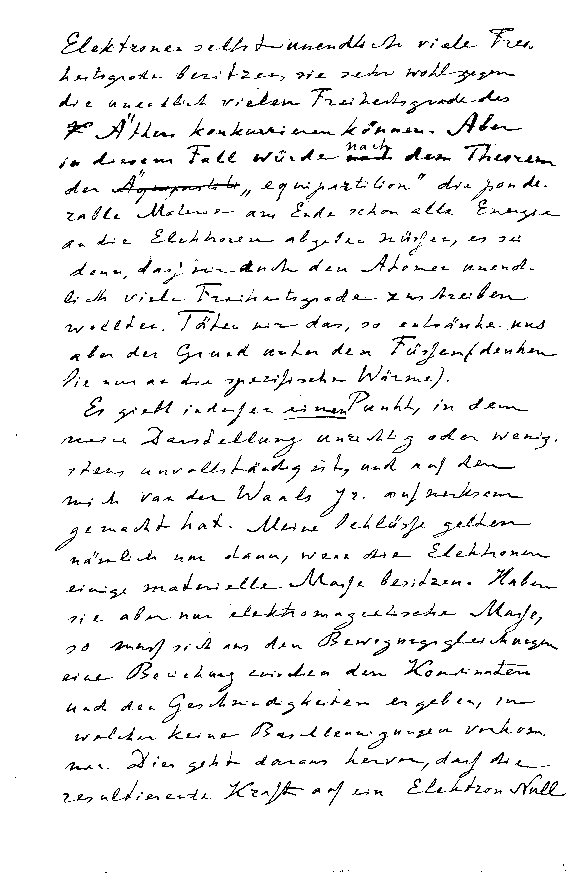 Elektronen selbst unendlich viele Frei-
heitsgrade besitzen, sie sehr wohl gegen
die unendlich vielen Freiheitsgrade des
Äthers konkurrieren können. Aber
in diesem Fall würde nach dem Theorem
der „equipartition" die ponde-
rable Materie am Ende schon alle Energie
an die Elektronen abgeben müssen, es sei
denn, dass wir auch den Atomen unend-
lich viele Freiheitsgrade zuschreiben
wollten. Täten wir das, so entsänke uns
aber der Grund unter den Füssen (denken
Sie nur an die spezifischen Wärme).
Es giebt indessen einen Punkt, in dem
meine Darstellung unrichtig oder wenig-
stens unvollständig ist, und auf den
mich van der Waals Jr. aufmerksam
gemacht hat. Meine Schlüsse gelten
nämlich nur dann, wenn die Elektronen
einige materielle Masse besitzen. Haben
sie aber nur elektromagnetische Masse,
so muss sich aus den Bewegungsgleichungen
eine Beziehung zwischen den Koordinaten
und den Geschwindigkeiten ergeben, in
welcher keine Beschleunigungen vorkom-
men. Dies geht daraus hervor, dass die
resultierende Kraft auf ein Elektron Null